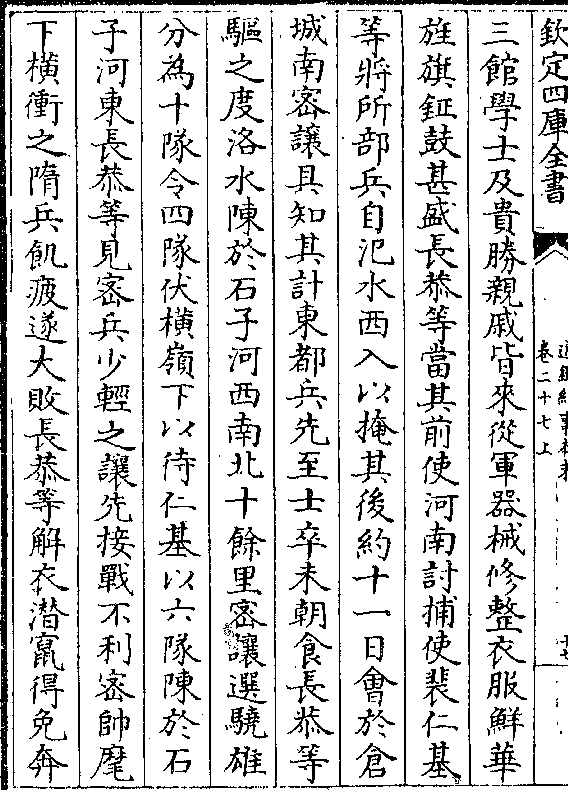 欽定四庫全書
卷二十七上
三館學士及貴勝親戚皆來從軍器械修整衣服鮮華
旌旗鉦鼓甚盛長恭等當其前使河南討捕使裴仁基
等將所部兵自汜水西入以掩其後約十一日會於倉
城南密讓具知其計東都兵先至士卒未朝食長恭等
驅之度洛水陳於石子河西南北十餘里密讓選驍雄
分為十隊令四隊伏橫嶺下以待仁基以六隊陳於石
子河東長恭等見密兵少輕之讓先接戰不利密帥麾
下橫衝之隋兵飢疲遂大敗長恭等解衣潛竄得免奔